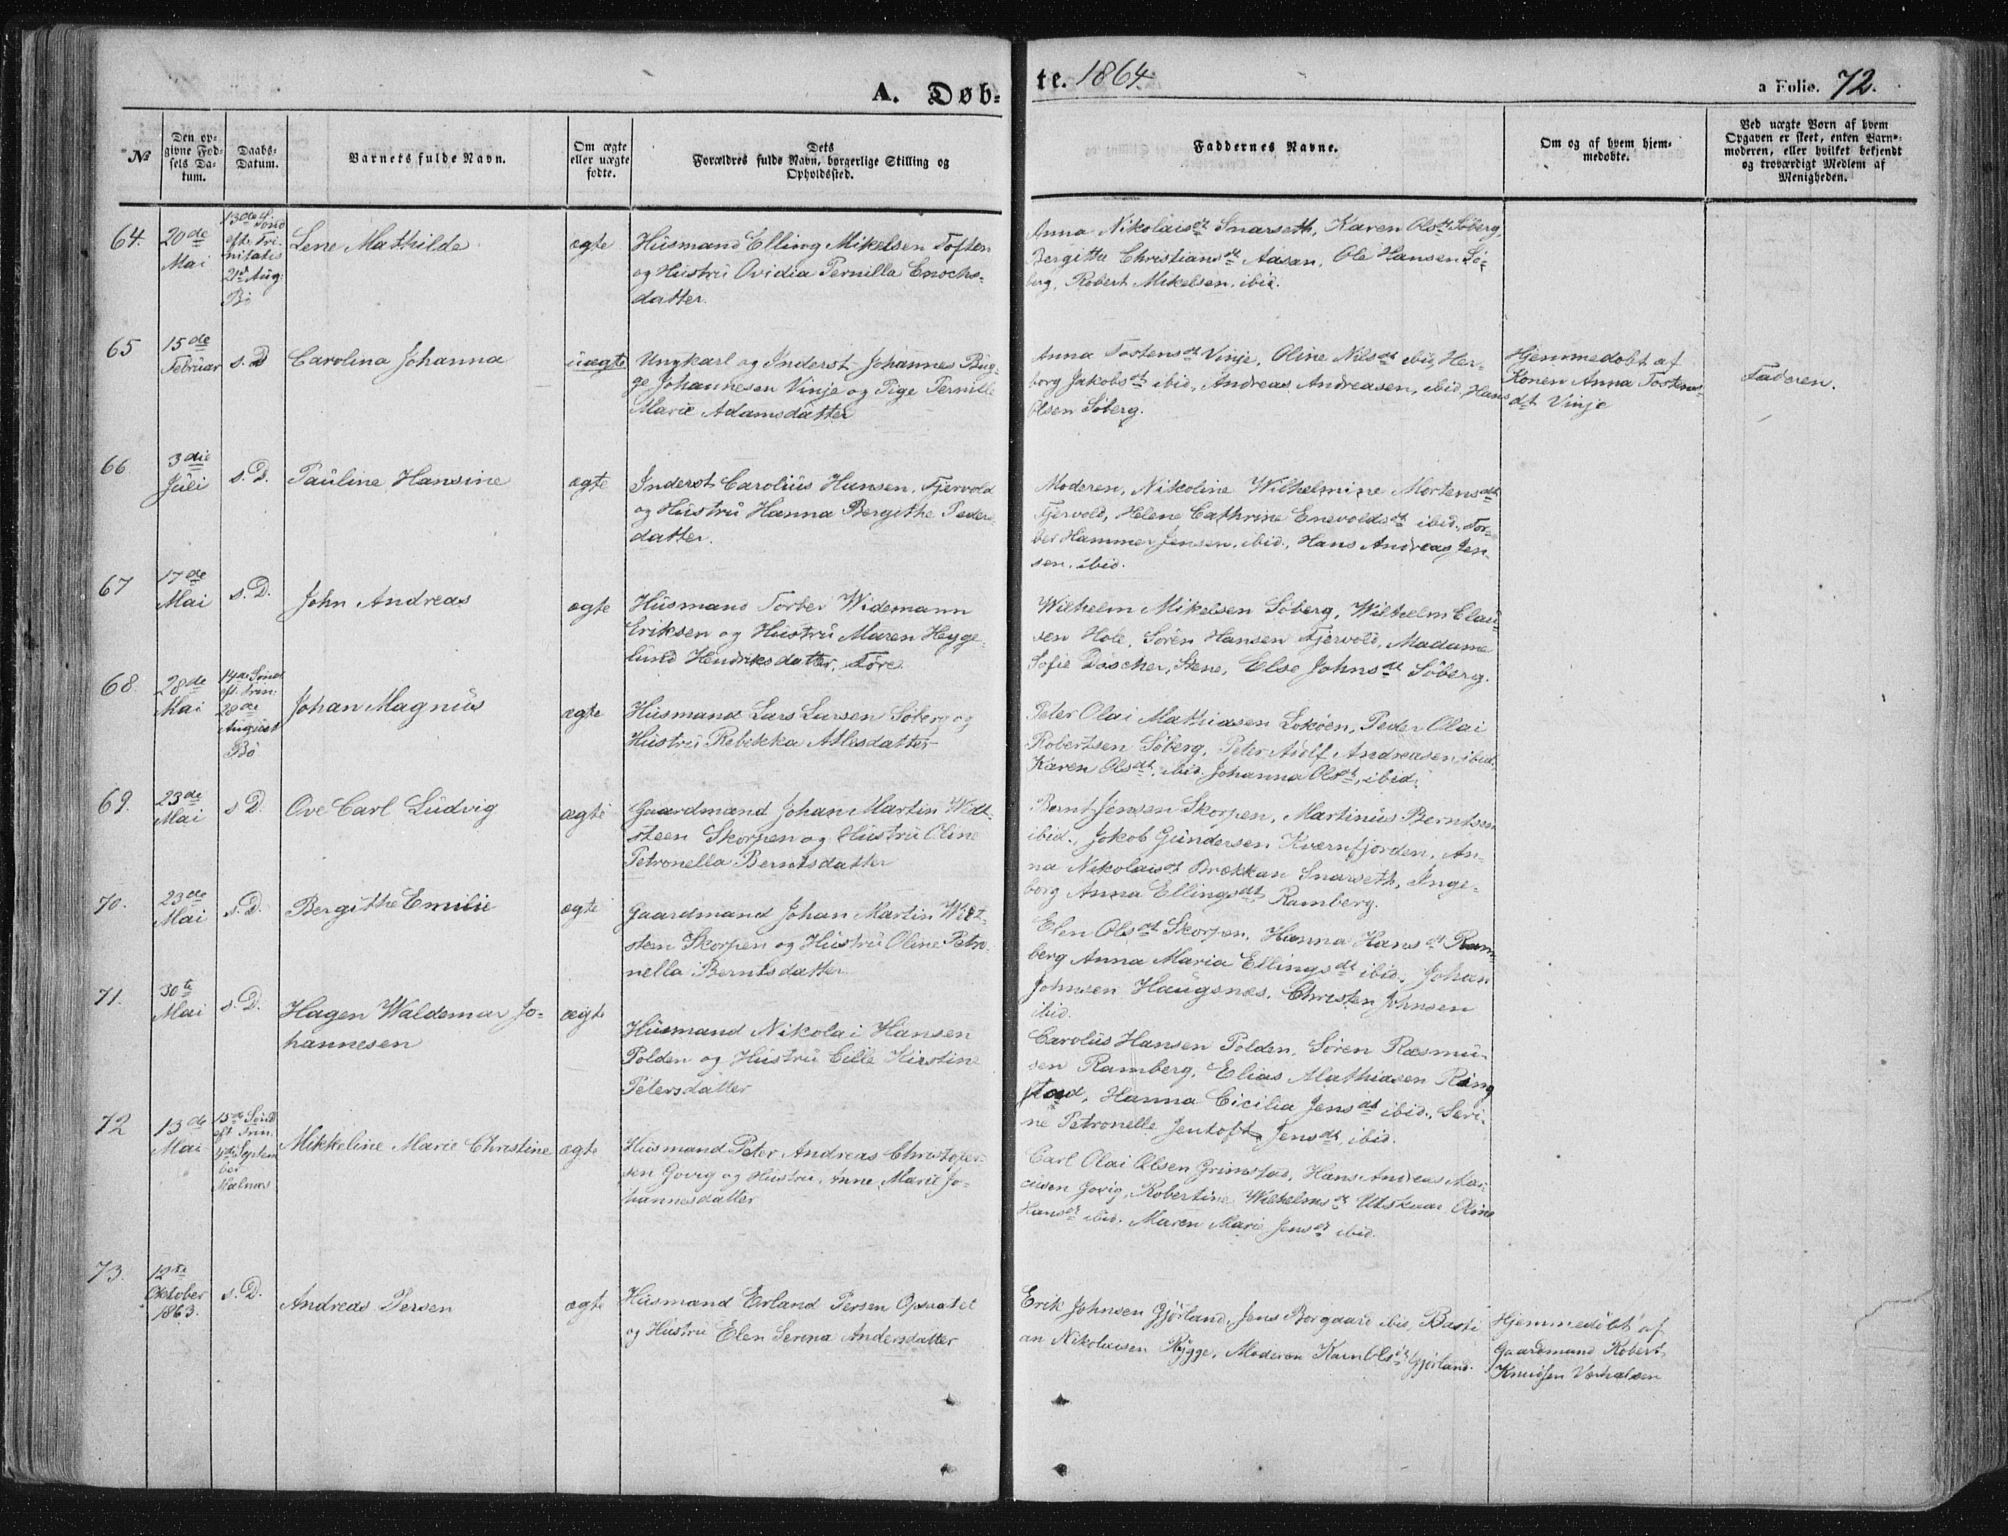 A. Døb-
te. 1864.
a Folio. 72.
№
Den op-
givne Fød-
sels Da-
tum.
Daabs-
Datum.
Barnets fulde Navn.
Om ægte
eller uægte
fødte.
Dets
Forældres fulde Navn, borgerlige Stilling og
Opholdssted.
Faddernes Navne.
Om og af hvem hjem-
medøbte.
Ved uægte Børn af hvem
Opgaven er skeet, enten Barn-
moderen, eller hvilket bekjendt
og troværdigt Medlem af
Menigheden.
64.
20de
Mai
13de S. Sønd
eft. Tri-
nitatis
21de Aug.
Bö
Lene Mathilde
ægte
Husmand Elling Mikelsen Toften
og Hustru Ovidia Pernilla Enochs-
datter.
Anna Nikolaisdt Snarseth, Karen Olsdt Söberg,
Bergitte Christiansdt Aasan, Ole Hansen Sö-
berg, Robert Mikelsen, ibid.
65
15de
Februar
s. D
Carolina Johanna
uægte
Ungkarl og Inderst Johannes Bug-
ge Johannesen Vinje og Pige Pernille
Marie Adamsdatter
Anna Tostensdt Vinje, Oline Nilsdt ibid, Her-
borg Jakobsdt ibid, Andreas Andreasen, ibid, Hans
Olsen Söberg.
Hjemmedöbt af
Konen Anna Tostens-
dt Vinje
Faderen.
66
3die
Juli
s. D.
Pauline Hansine
ægte
Inderst Carolius Hansen, Fjervold
og Hustru Hanna Bergithe Peders
datter.
Moderen, Nikoline Wilhelmine Mortensdt
Fjervold, Helene Cathrine Enevoldsdt ibid, Tor-
ber Hammer Jensen, ibid., Hans Andreas Jen
sen. ibid.
67
17de
Mai
s. D.
John Andreas
ægte
Husmand Torber Widemann
Eriksen og Hustru Maren Hegge-
lund Hendriksdatter, Före.
Wilhelm Mikelsen Söberg, Wilhelm Clau-
sen Hole, Sören Hansen Fjervold, Madame
Sofie Döscher, Stene, Else Johnsdt Söberg.
68.
28de
Mai
14de Sönd
eft. Trin:
28de
August
Bö
Johan Magnus
ægte
Husmand Lars Larsen Söberg og
Hustru Rebekka Atlesdatter
Peter Olai Mathiasen Loköen, Peder Olai
Robertsen Söberg, Peter Adolf Andreasen ibid,
Karen Olsdt, ibid, Johanna Olsdt, ibid.
69.
23de
Mai
s. D.
Ove Carl Ludvig
ægte
Gaardmand Johan Martin Widt-
steen Skorpen og Hustru Oline
Petronella Berntsdatter
Bernt Jensen Skorpen, Martinus Berntsen
ibid., Jakob Gundersen Kværnfjorden, An-
na Nikolaisdt Brækkan Snarseth, Inge-
borg Anna Ellingsdt Ramberg.
70.
23de
Mai
s. D.
Bergitte Emilie
ægte
Gaardmand Johan Martin Widt-
steen Skorpen og Hustru Oline Petro-
nella Berntsdatter
Elen Olsdt Skorpen, Hanna Hansdt Ram
berg Anna Maria Ellingsdt ibid. Johan
Johnsen Haugsnes. Christen Johnsen
ibid.
71.
30te
Mai
s. D.
Hagen Waldemar Jo-
hannesen
ægte
Husmand Nikolai Hansen
Polden og Hustru Cille Kirstine
Petersdatter
Carolus Hansen Polden, Sören Rasmu-
sen Ramberg, Elias Mathiasen Ring
stad, Hanna Cicilia Jensdt ibid., Seri-
ne Petronelle Jentoft Jensdt, ibid.
72
13de
Mai
15de Sönd
eft Trin.
4de Septem
ber
Malnes
Mikkeline Marie Christine
ægte
Husmand Peter Andreas Christofer-
sen Govig og Hustru Anne Marie Jo-
hannesdatter
Carl Olai Olsen Grimstad, Hans Andreas
Govig, Robertine Wilhelmsdt Utskaar Oline
Hansdt ibid. Maren Marie Jensdt ibid.
73.
12te
Oktober
1863.
s. D.
Andreas Persen
ægte
Husmand Erland Persen Opsaatet
og Hustru Elen Serina Andersdatter
Erik Johnsen Gjörland, Jens Borgaard ibid, Basti
an Nikolaisen Rygge, Moderen Karn Olsdt Gjörland.
Hjemmedöbt af
Gaardmand Robert
Knudsen Vorhalsen